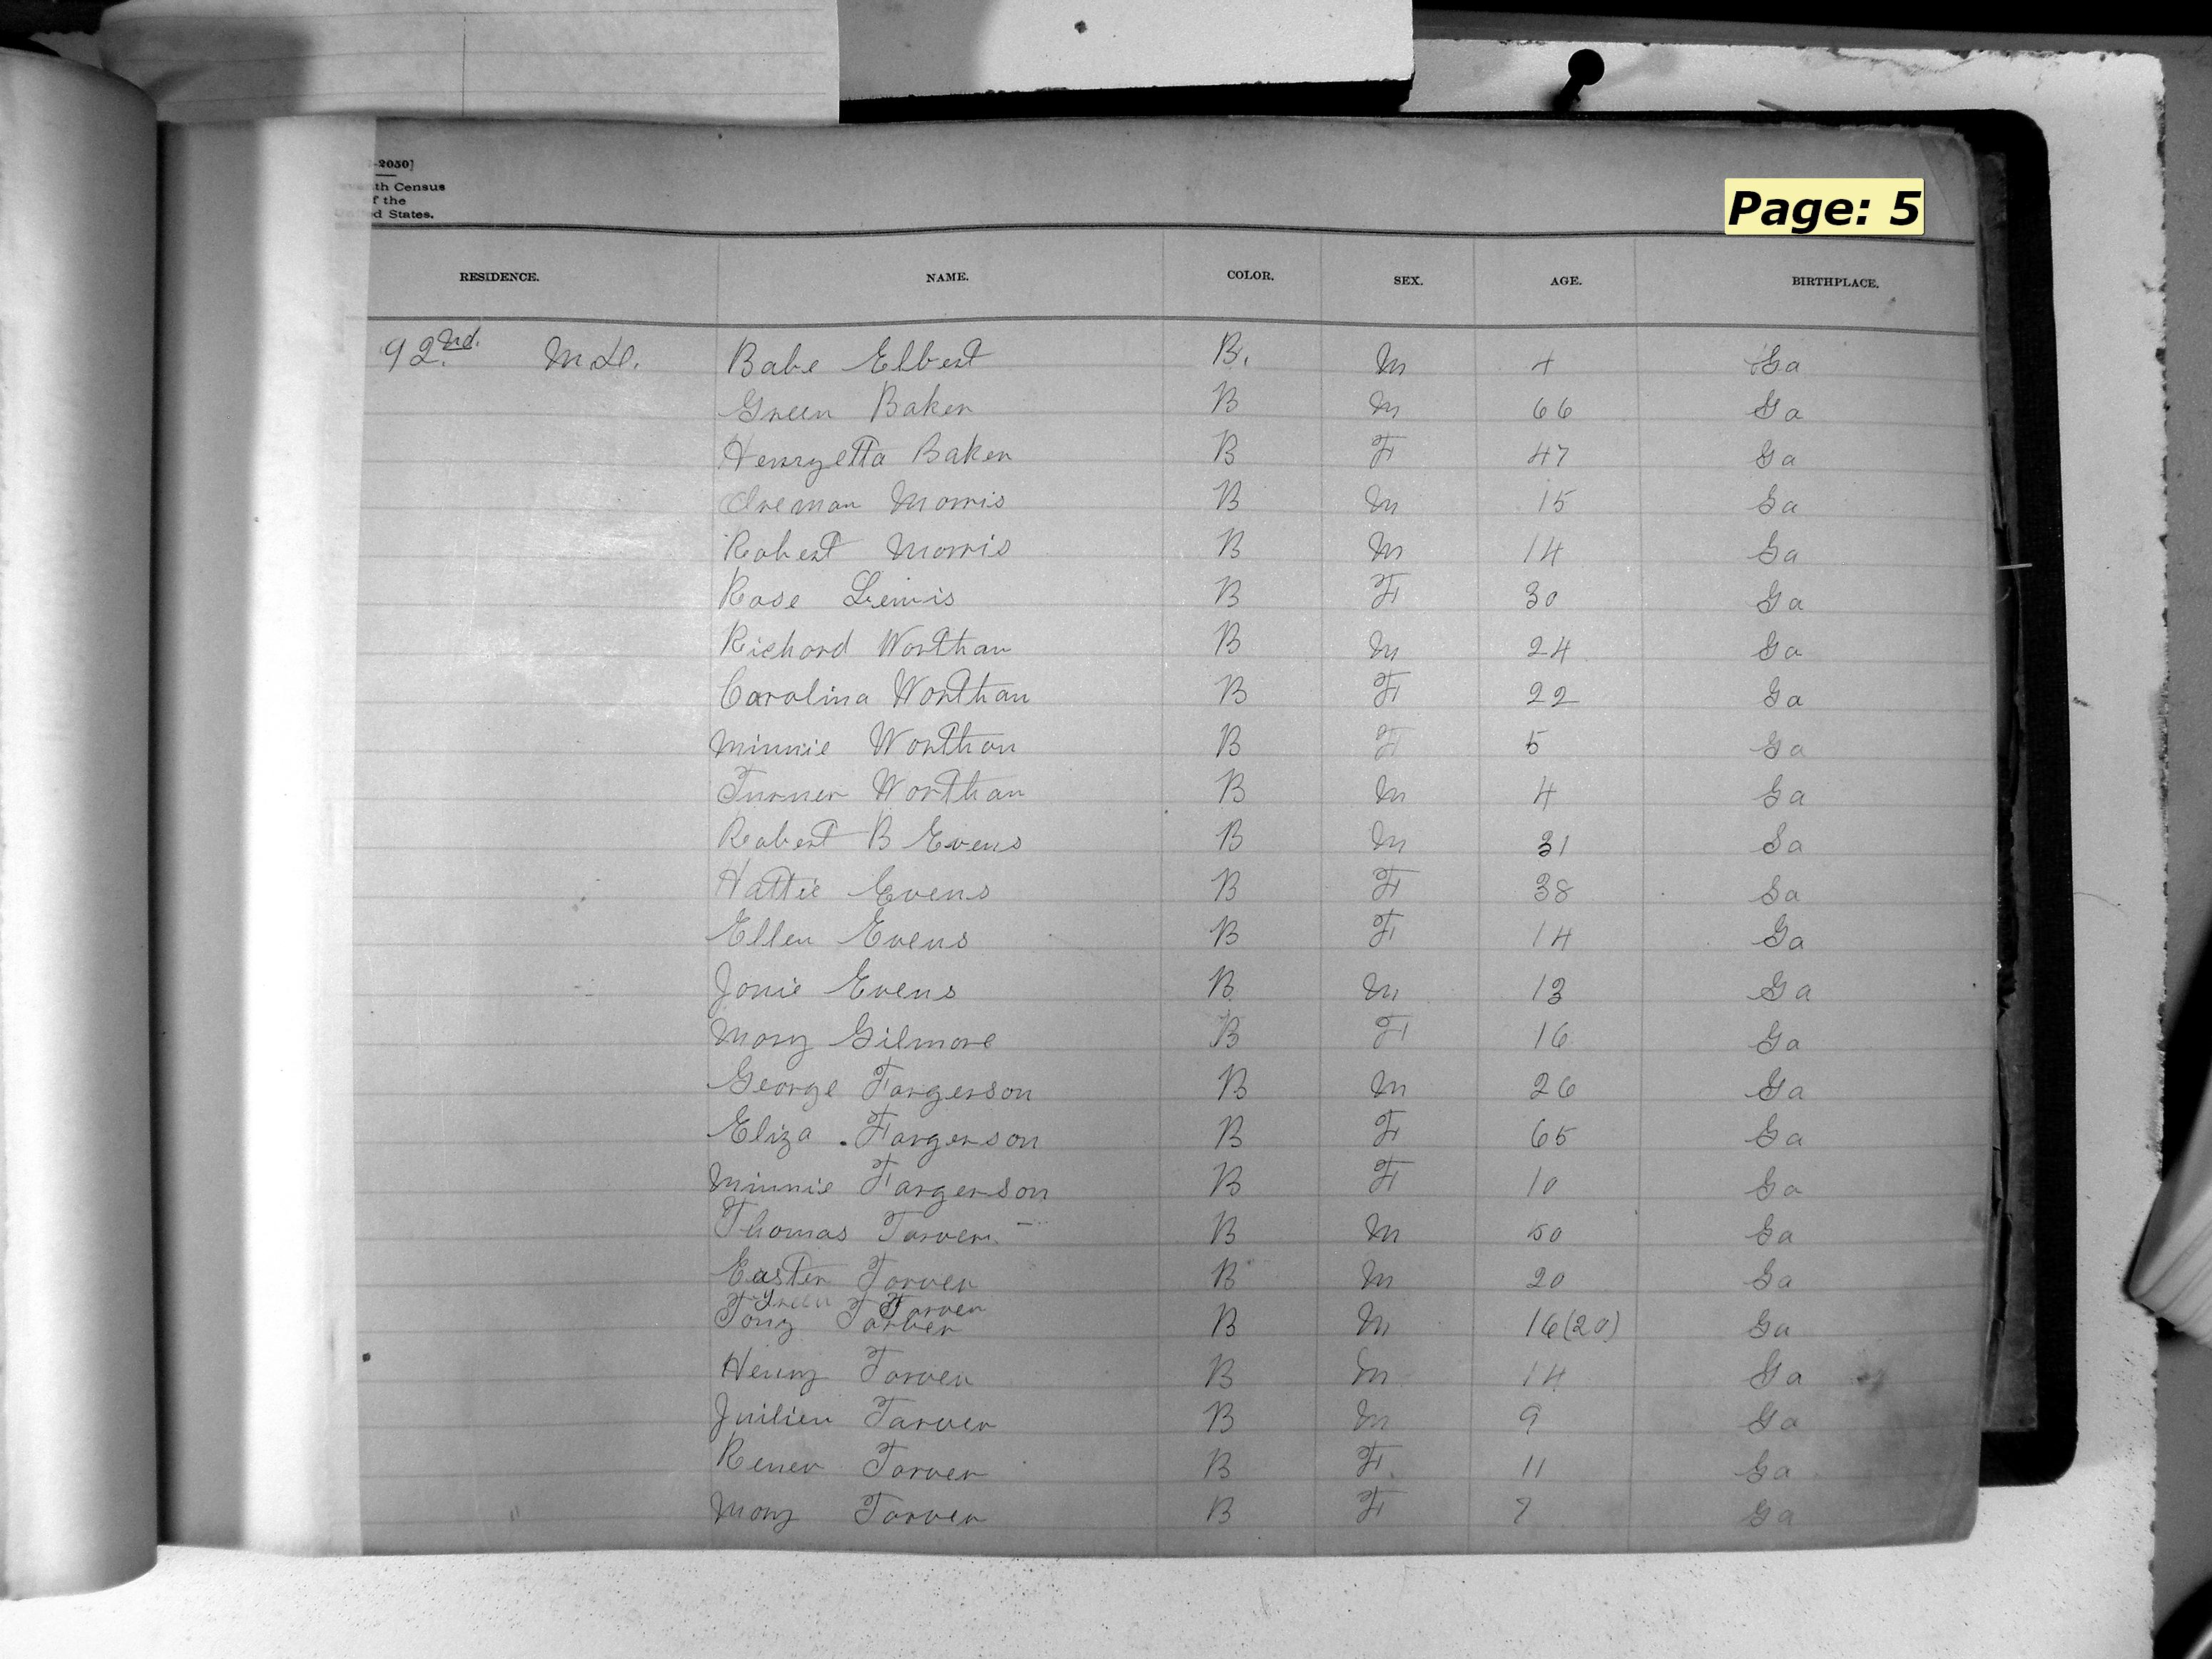 -2050]
th Census
f the
ed States.
Page: 5
RESIDENCE. NAME. COLOR. SEX. AGE. BIRTHPLACE.
92nd. M.D. Babe Elbert B. M + Ga
Green Baker B M 66 Ga
Henryetta Baker B F 47 Ga
Morris B M 15 Ga
Robert Morris B M 14 Ga
Rose Lewis B F 30 Ga
Richard Worthan B M 24 Ga
Carolina Worthan B F 22 Ga
Minnie Worthan B F 5 Ga
Turner Worthan B M 4 Ga
Robert B Evens B M 31 Ga
Hattie Evens B F 38 Ga
Ellen Evens B F 14 Ga
Jonie Evens B M 13 Ga
Mary Gilmore B F 16 Ga
George Fargerson B M 26 Ga
Eliza Fargerson B F 65 Ga
Minnie Fargerson B F 10 Ga
Thomas Tarver B M 50 Ga
Easter Tarver B M 20 Ga
Green Tarver
Tony Tarver B M 16(20) Ga
Henry Tarver B M 14 Ga
Juilien Tarver B M 9 Ga
Rener Tarver B F 11 Ga
Mary Tarver B F 7 Ga